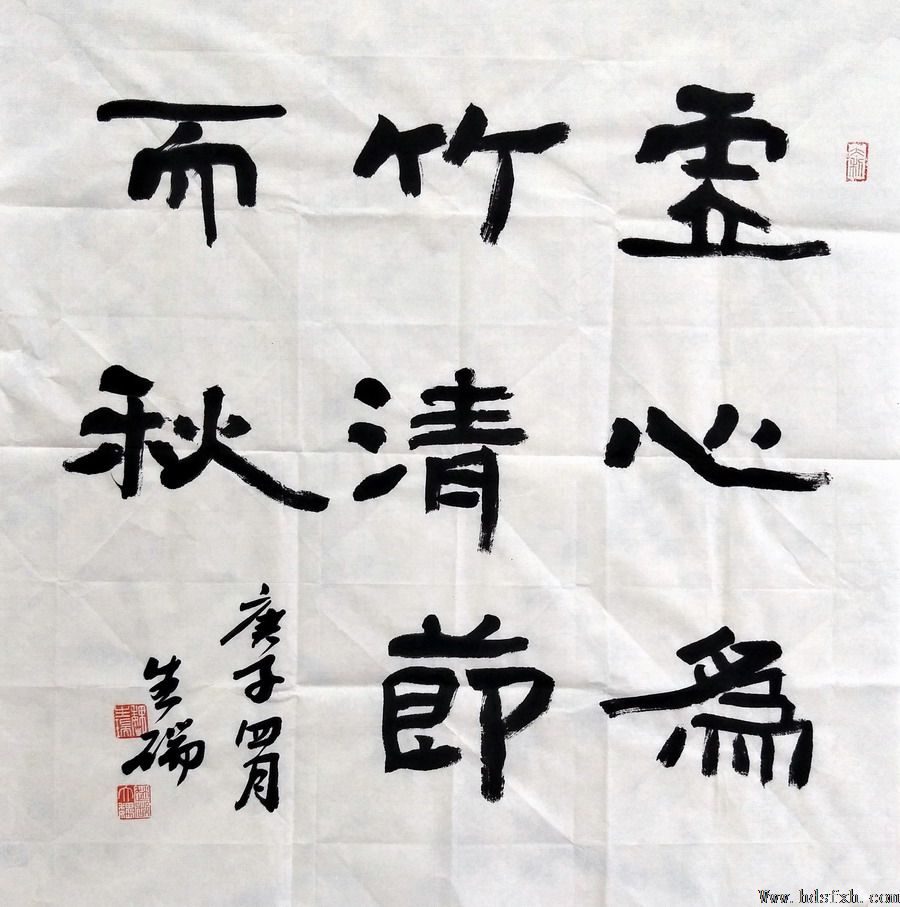 虛心爲
竹清節
而秋
庚子四月
生瑞
Www.hdsfxh.com